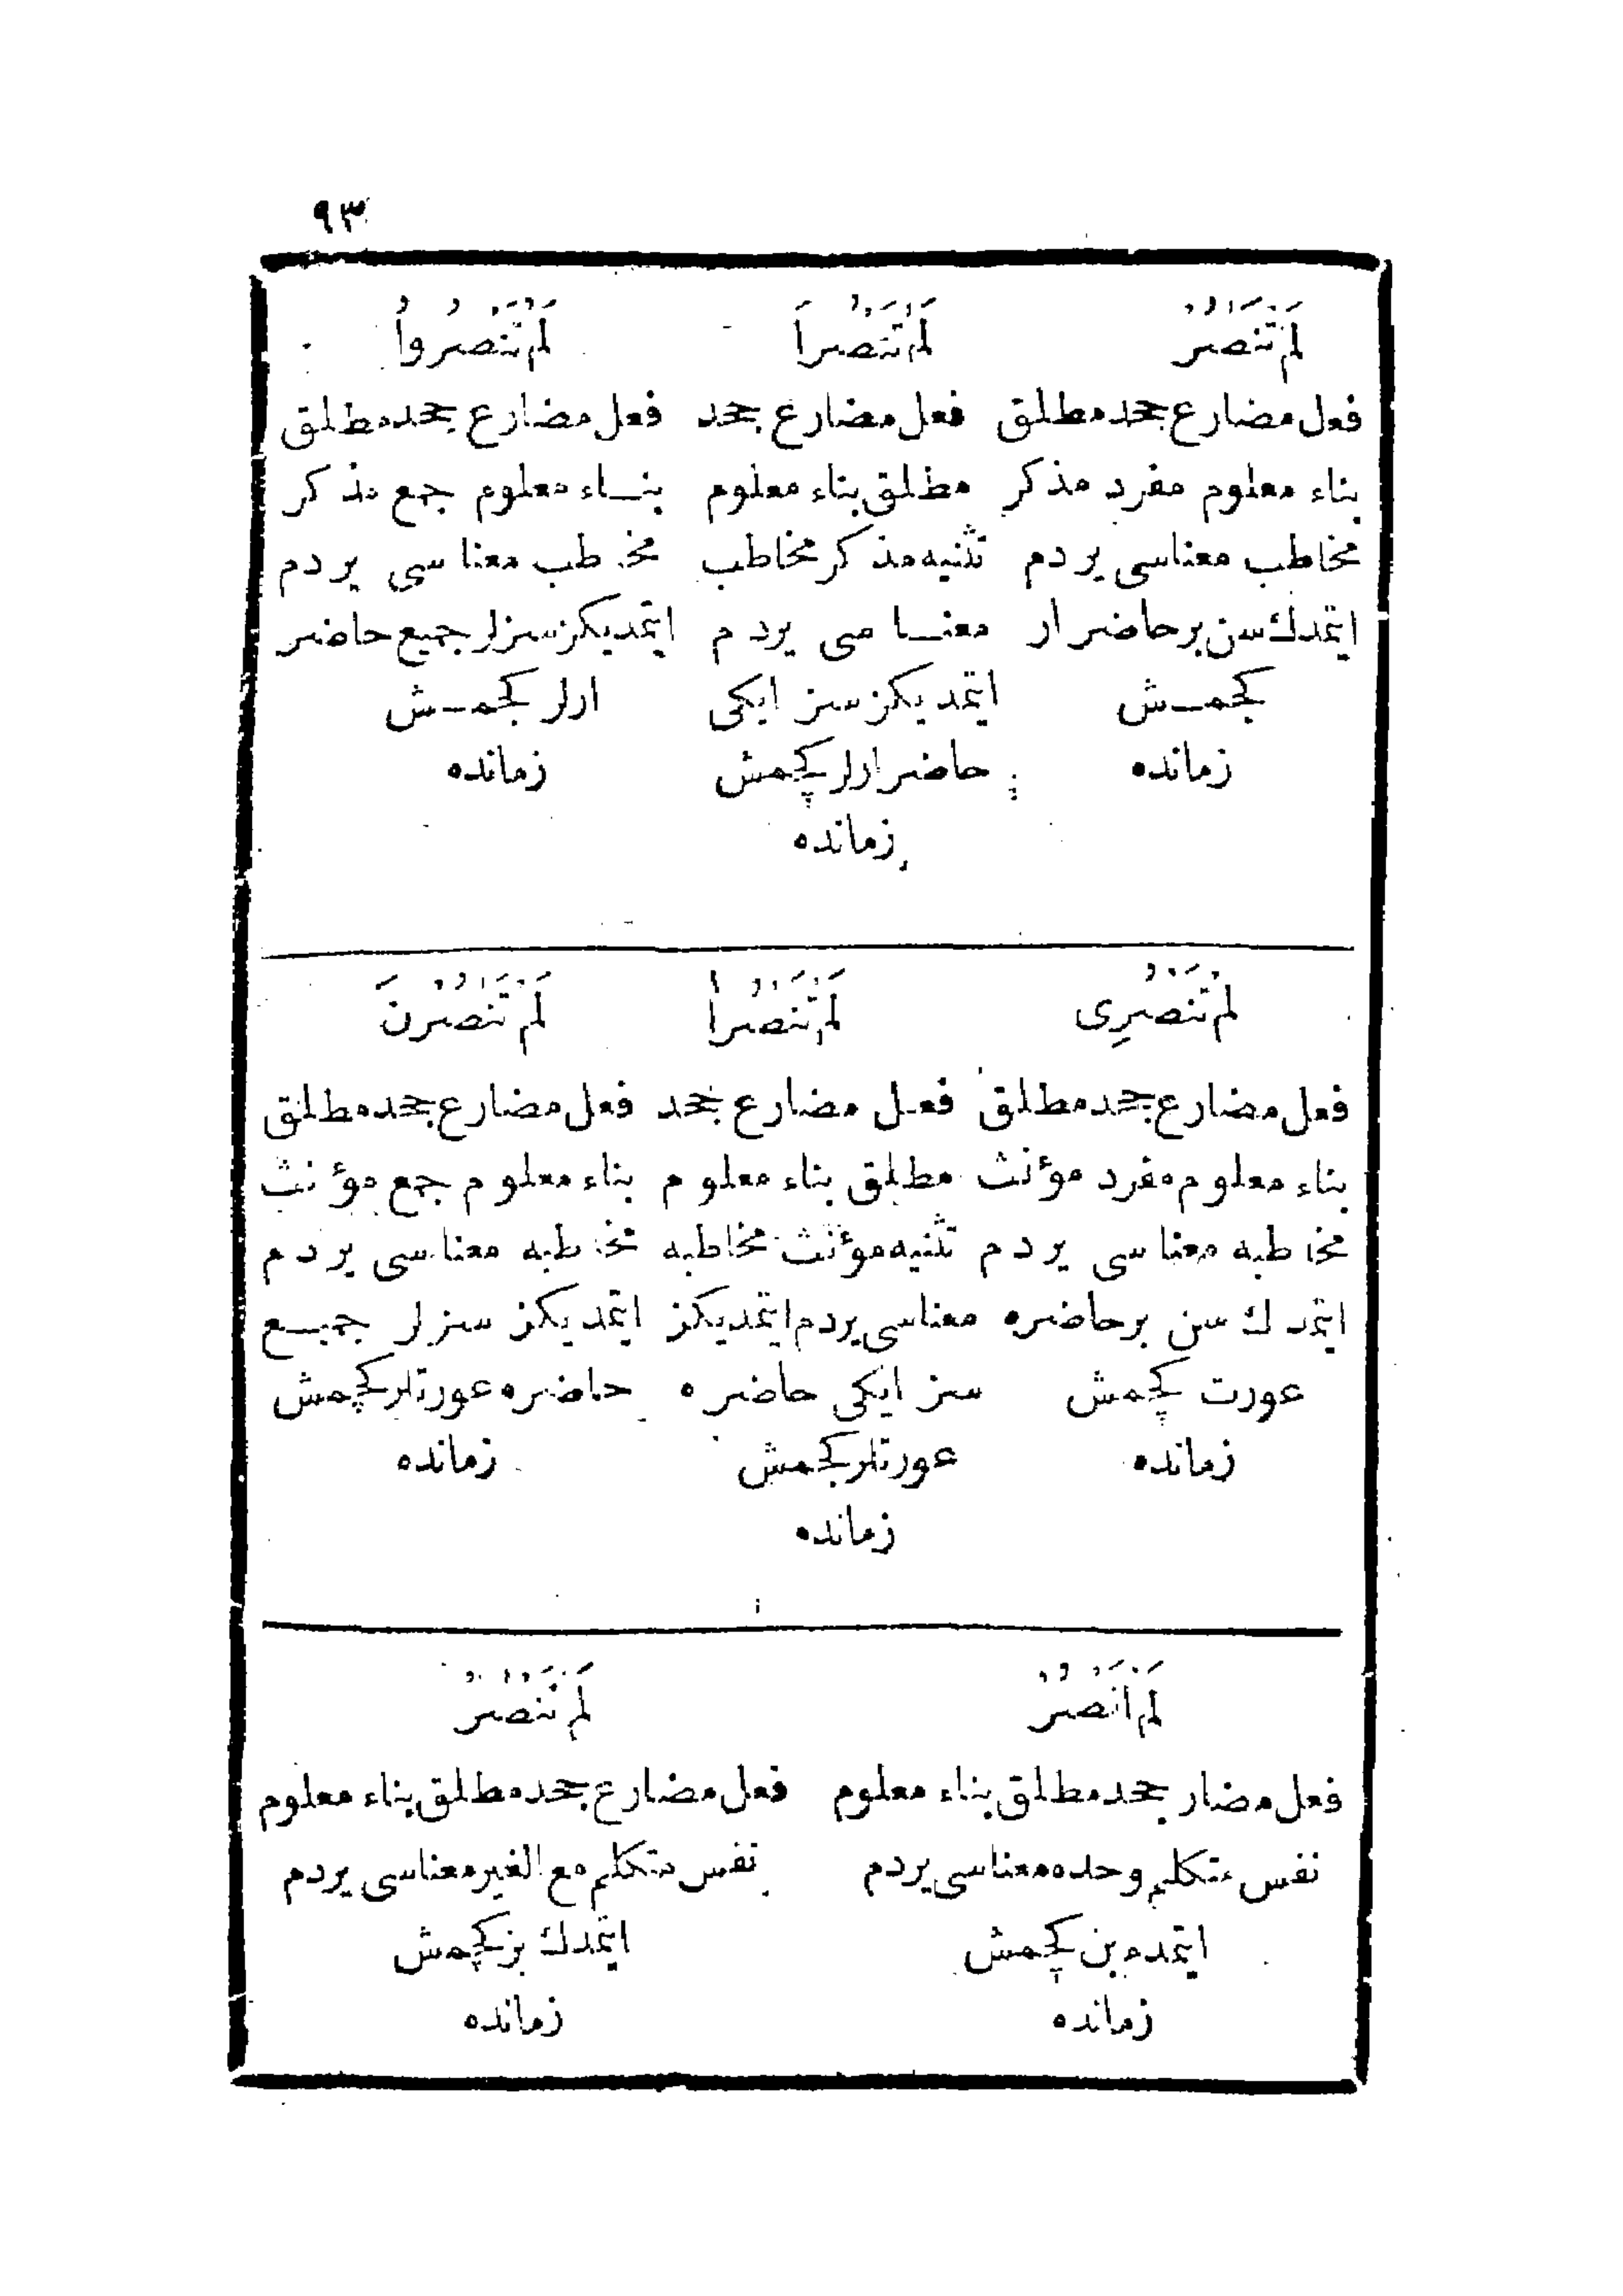 ٩٣
لَمْ تَنْصُرْ
فعل مضارع جحد مطلق
بناء معلوم مفرد مذكر
مخاطب معناسی یردم
ایتمدك سن بر حاضر ار
كچمش
زمانده
لَمْ تَنْصُرَا
فعل مضارع جحد
مطلق بناء معلوم
تثنیه مذكر مخاطب
معناسی یردم
ایتمدیكز سز ایكی
حاضر ارلر كچمش
زمانده
لَمْ تَنْصُرُوا
فعل مضارع جحد مطلق
بناء معلوم جمع مذكر
مخاطب معناسی یردم
ایتمدیكز سزلر جمیع حاضر
ارلر كچمش
زمانده
لَمْ تَنْصُرِی
فعل مضارع جحد مطلق
بناء معلوم مفرد مؤنث
مخاطبه معناسی یردم
ایتمدك سن بر حاضره
عورت كچمش
زمانده
لَمْ تَنْصُرَا
فعل مضارع جحد
مطلق بناء معلوم
تثنیه مؤنث مخاطبه
معناسی یردم ایتمدیكز
سز ایكی حاضره
عورتلر كچمش
زمانده
لَمْ تَنْصُرْنَ
فعل مضارع جحد مطلق
بناء معلوم جمع مؤنث
مخاطبه معناسی یردم
ایتمدیكز سزلر جمیع
حاضره عورتلر كچمش
زمانده
لَمْ اَنْصُرْ
فعل مضار جحد مطلق بناء معلوم
نفس متكلم وحده معناسی یردم
ایتمدم بن كچمش
زمانده
لَمْ نَنْصُرْ
فعل مضارع جحد مطلق بناء معلوم
نفس متكلم مع الغیر معناسی یردم
ایتمدك بز كچمش
زمانده